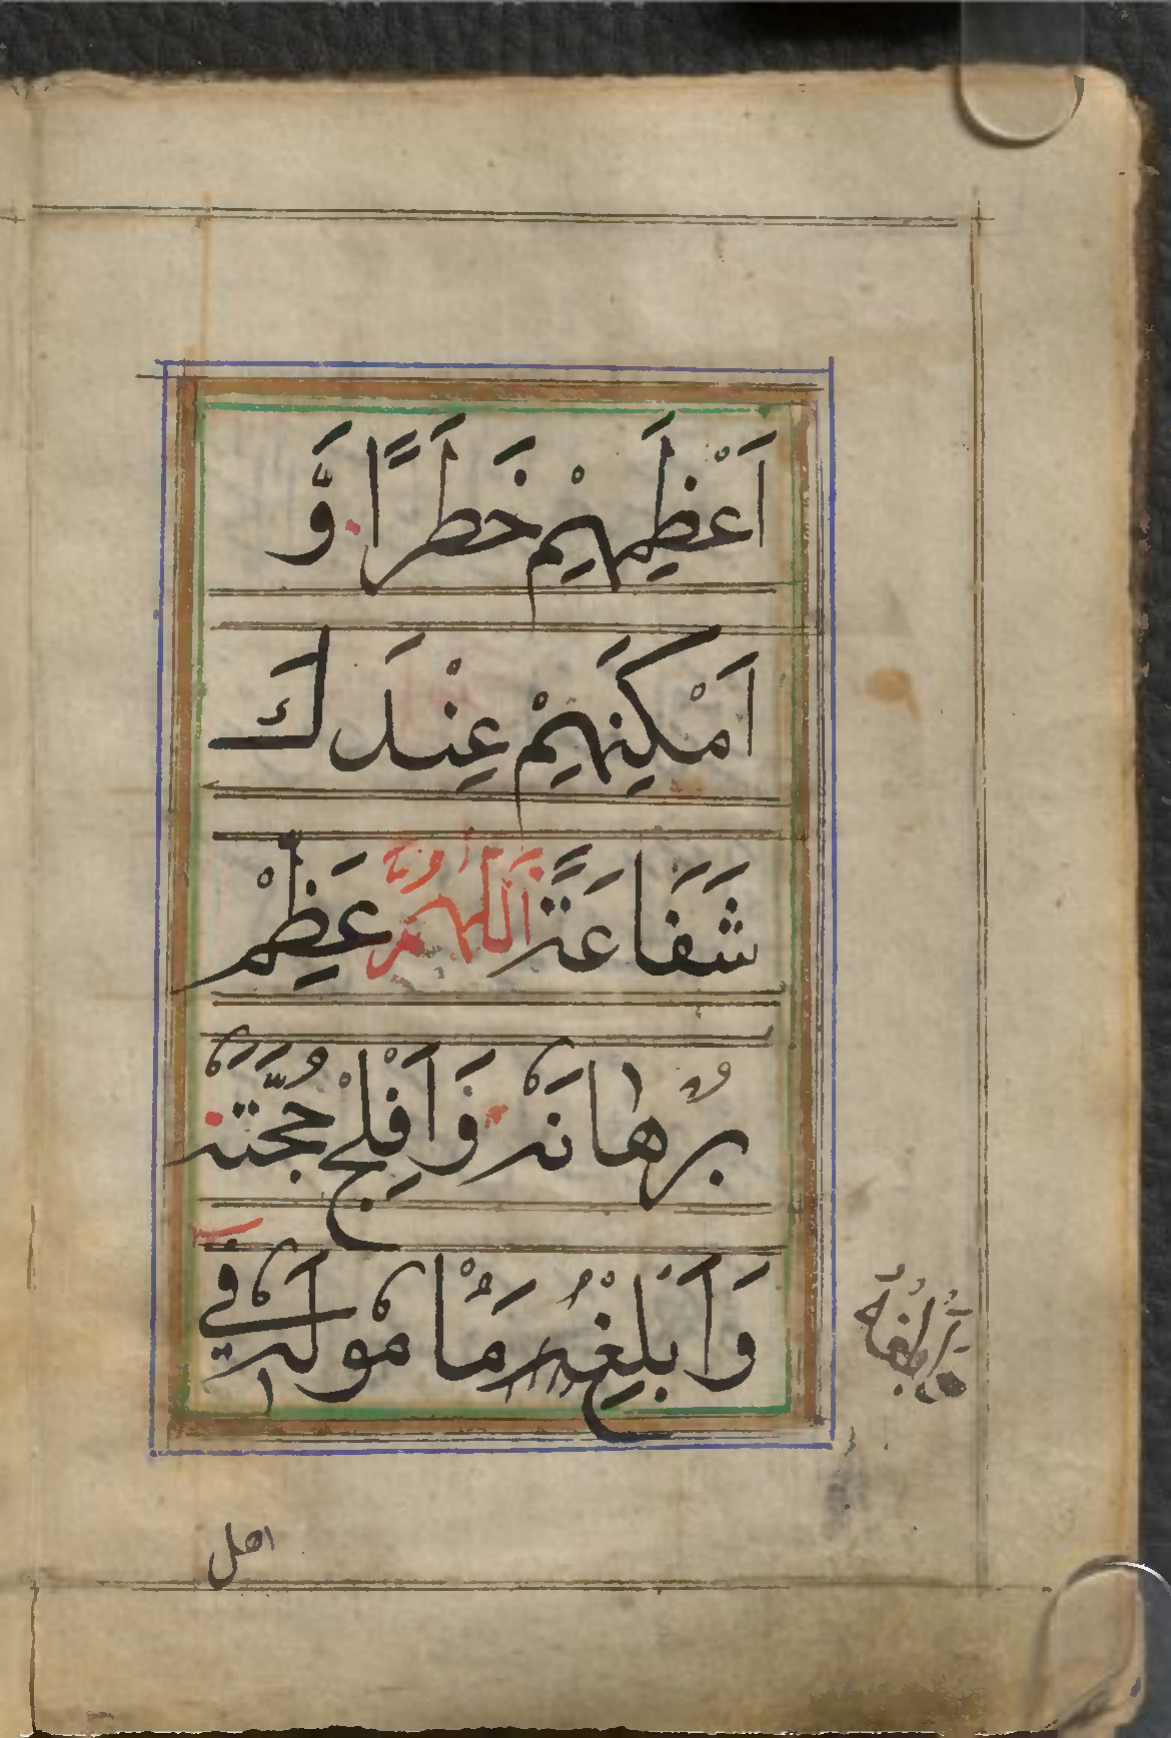 اَعْظَمِهِمْ خَطَرًا وَّ
اَمْكَنِهِمْ عِنْدَكَ
شَفَاعَةً اَللّٰهُمَّ عَظِّمْ
بُرْهَانَهٗ وَاَفْلِجْ حُجَّتَهٗ
وَاَبْلِغْهُ مَاْمُوْلَهٗ فِيْ
اهل